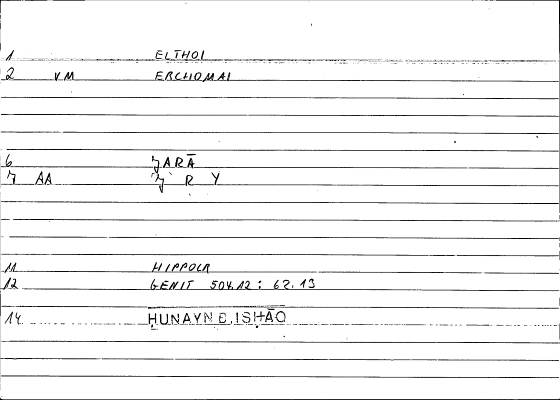 1 ELTHOI
2 VM ERCHOMAI
6 ǦARĀ
7 AA Ǧ R Y
11 HIPPOCR
12 GENIT 504.12 : 62.13
14 ḤUNAYN B. ISḤĀQ